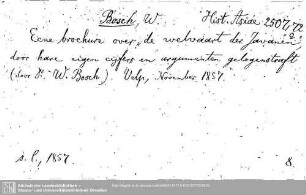 Bosch, W.
Hist. Asiae 2507, 72
2
Eene brochure over „de welvaart der Javanen"
door hare eigen cijfers en argumenten gelogenstraft
(door Dr. W. Bosch). Velp, November 1857.
s. l., 1857.
8.